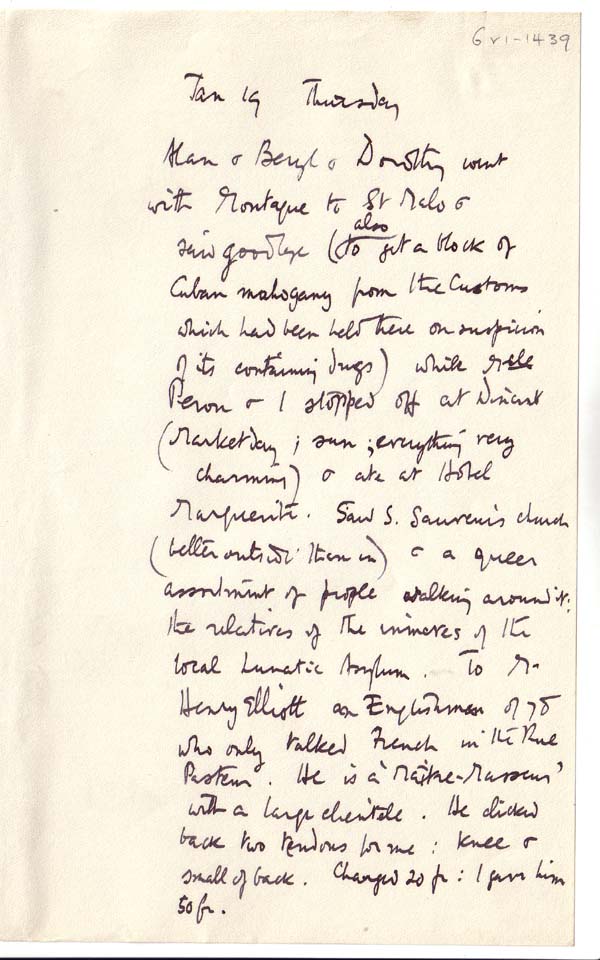 Gv1-1439
Jan 19 Thursday
Alan & Beryl & Dorothy went
with Montague to St Malo &
said goodbye (to also get a block of
Cuban mahogany from the Customs
which had been held there on suspicion
of its containing drugs) while Mlle
Peron & I stopped off at Dinant
(Market day; sun; everything very
charming) & ate at Hotel
Marguerite. Saw S. Sauveur's church
(better outside than in) & a queer
assortment of people walking around it:
the relatives of the inmates of the
local Lunatic Asylum. To Mr
Henry Elliott an Englishman of 78
who only talked French in the Rue
Pasteur. He is a 'Maître-Masseur'
with a large clientele. He clicked
back two tendons for me: knee &
small of back. Charged 20 fr: I gave him
50 fr.